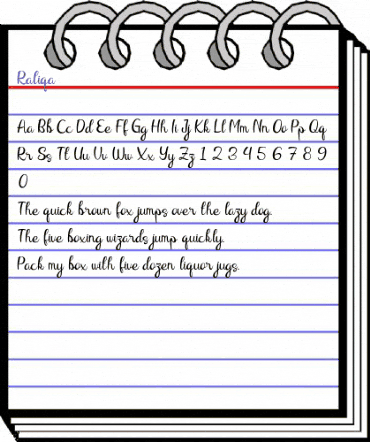 Raliqa
Aa Bb Cc Dd Ee Ff Gg Hh Ii Jj Kk Ll Mm Nn Oo Pp Qq
Rr Ss Tt Uu Vv Ww Xx Yy Zz 1 2 3 4 5 6 7 8 9
0
The quick brown fox jumps over the lazy dog.
The five boxing wizards jump quickly.
Pack my box with five dozen liquor jugs.